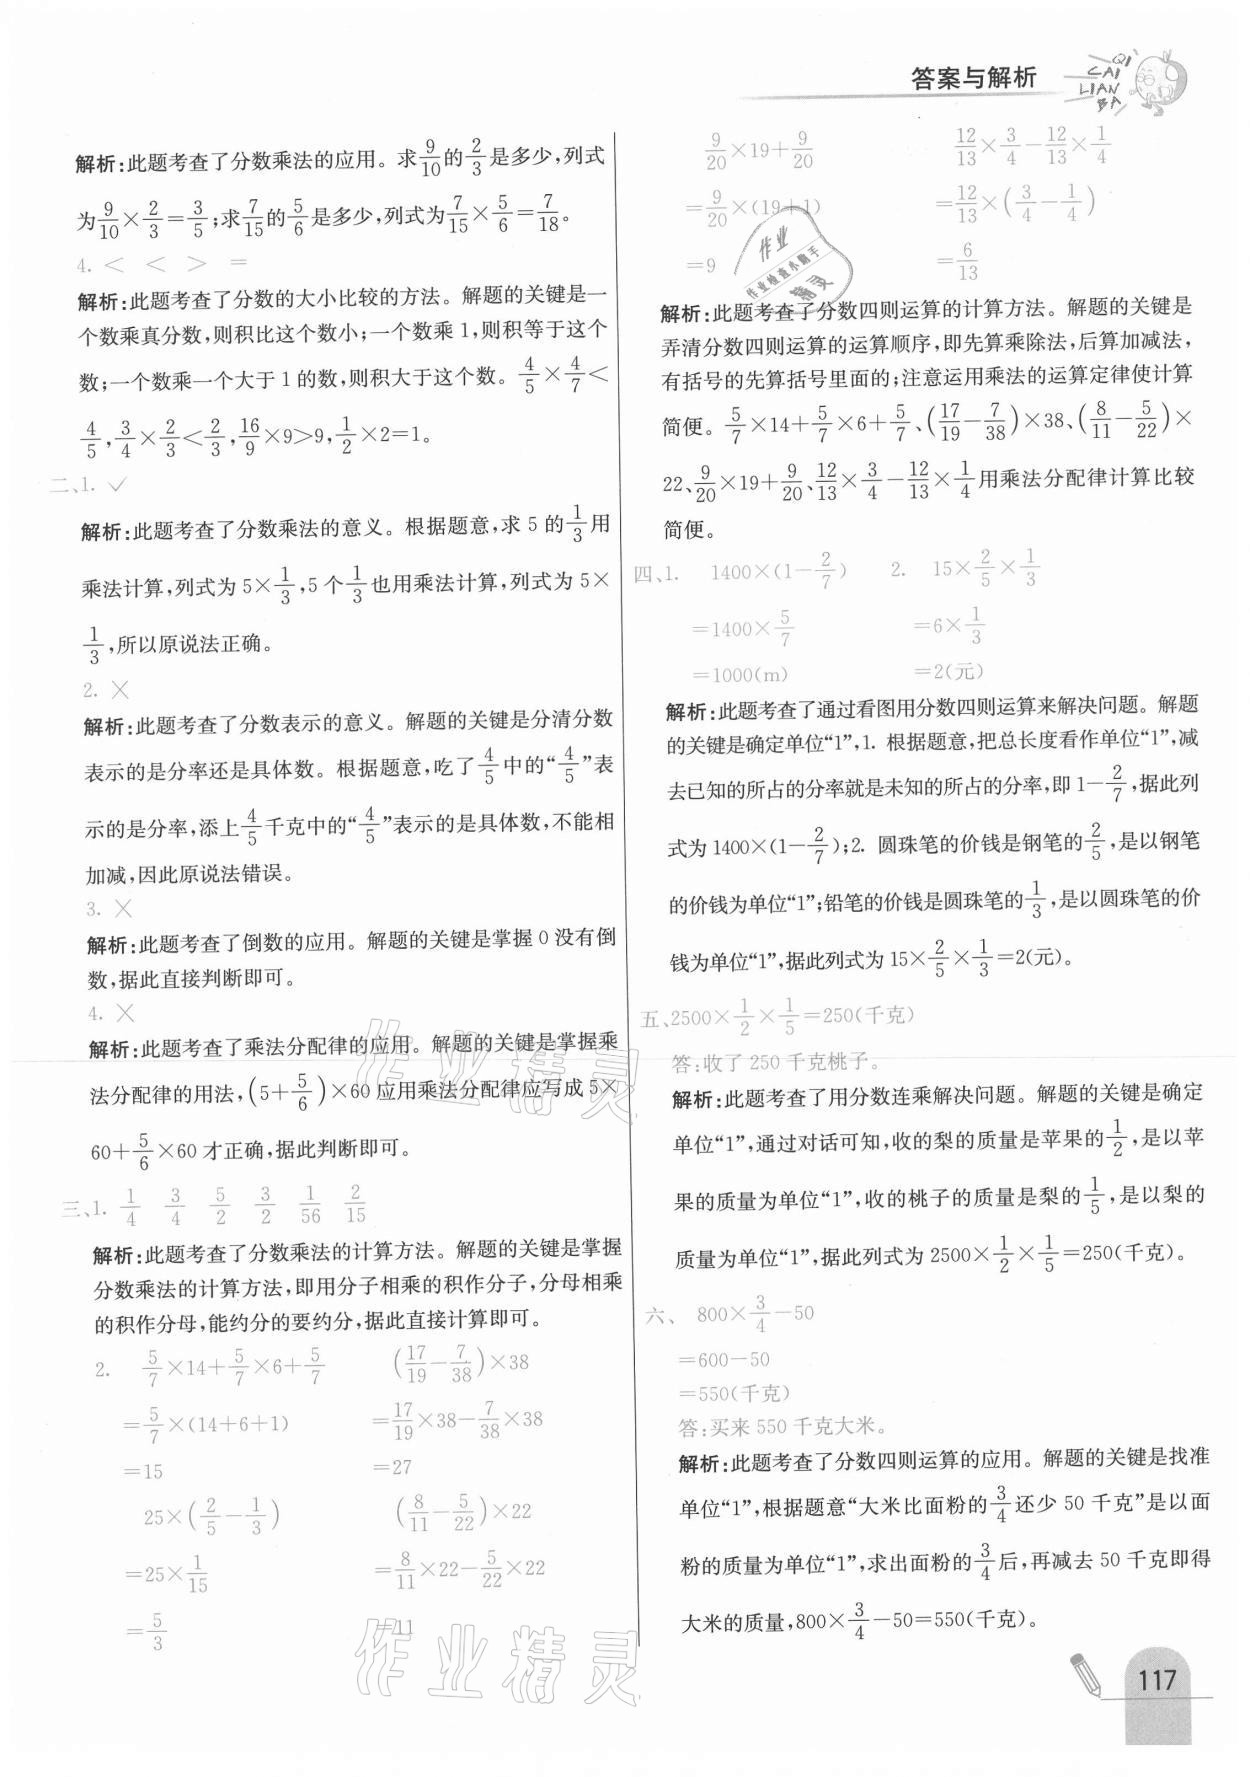 答案与解析
QI
CAI
LIAN
BA
解析:此题考查了分数乘法的应用。求9/10的2/3是多少,列式
为9/10×2/3=3/5;求7/15的5/6是多少,列式为7/15×5/6=7/18。
4. < < > =
解析:此题考查了分数的大小比较的方法。解题的关键是一
个数乘真分数,则积比这个数小;一个数乘1,则积等于这个
数;一个数乘一个大于1的数,则积大于这个数。4/5×4/7<
4/5,3/4×2/3<2/3,16/9×9>9,1/2×2=1。
二、1. ✓
解析:此题考查了分数乘法的意义。根据题意,求5的1/3用
乘法计算,列式为5×1/3,5个1/3也用乘法计算,列式为5×
1/3,所以原说法正确。
2. ×
解析:此题考查了分数表示的意义。解题的关键是分清分数
表示的是分率还是具体数。根据题意,吃了4/5中的“4/5”表
示的是分率,添上4/5千克中的“4/5”表示的是具体数,不能相
加减,因此原说法错误。
3. ×
解析:此题考查了倒数的应用。解题的关键是掌握0没有倒
数,据此直接判断即可。
4. ×
解析:此题考查了乘法分配律的应用。解题的关键是掌握乘
法分配律的用法,(5+5/6)×60应用乘法分配律应写成5×
60+5/6×60才正确,据此判断即可。
三、1. 1/4 3/4 5/2 3/2 1/56 2/15
解析:此题考查了分数乘法的计算方法。解题的关键是掌握
分数乘法的计算方法,即用分子相乘的积作分子,分母相乘
的积作分母,能约分的要约分,据此直接计算即可。
2. 5/7×14+5/7×6+5/7 (17/19-7/38)×38
=5/7×(14+6+1) =17/19×38-7/38×38
=15 =27
25×(2/5-1/3) (8/11-5/22)×22
=25×1/15 =8/11×22-5/22×22
=5/3 =11
9/20×19+9/20 12/13×3/4-12/13×1/4
=9/20×(19+1) =12/13×(3/4-1/4)
=9 =6/13
解析:此题考查了分数四则运算的计算方法。解题的关键是
弄清分数四则运算的运算顺序,即先算乘除法,后算加减法,
有括号的先算括号里面的;注意运用乘法的运算定律使计算
简便。5/7×14+5/7×6+5/7、(17/19-7/38)×38、(8/11-5/22)×
22、9/20×19+9/20、12/13×3/4-12/13×1/4用乘法分配律计算比较
简便。
四、1. 1400×(1-2/7) 2. 15×2/5×1/3
=1400×5/7 =6×1/3
=1000(m) =2(元)
解析:此题考查了通过看图用分数四则运算来解决问题。解题
的关键是确定单位“1”,1. 根据题意,把总长度看作单位“1”,减
去已知的所占的分率就是未知的所占的分率,即1-2/7,据此列
式为1400×(1-2/7);2. 圆珠笔的价钱是钢笔的2/5,是以钢笔
的价钱为单位“1”;铅笔的价钱是圆珠笔的1/3,是以圆珠笔的价
钱为单位“1”,据此列式为15×2/5×1/3=2(元)。
五、2500×1/2×1/5=250(千克)
答:收了250千克桃子。
解析:此题考查了用分数连乘解决问题。解题的关键是确定
单位“1”,通过对话可知,收的梨的质量是苹果的1/2,是以苹
果的质量为单位“1”,收的桃子的质量是梨的1/5,是以梨的
质量为单位“1”,据此列式为2500×1/2×1/5=250(千克)。
六、 800×3/4-50
=600-50
=550(千克)
答:买来550千克大米。
解析:此题考查了分数四则运算的应用。解题的关键是找准
单位“1”,根据题意“大米比面粉的3/4还少50千克”是以面
粉的质量为单位“1”,求出面粉的3/4后,再减去50千克即得
大米的质量,800×3/4-50=550(千克)。
117
作业
作业检查小助手
精灵
作业精灵
作业精灵